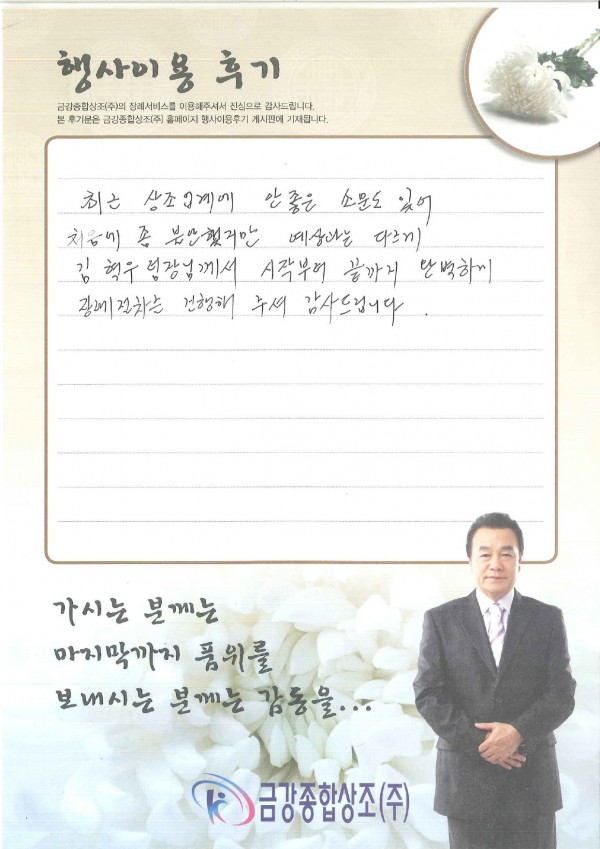 행사이용 후기
금강종합상조(주)의 장례서비스를 이용해주셔서 진심으로 감사드립니다.
본 후기문은 금강종합상조(주) 홈페이지 행사이용후기 게시판에 기재됩니다.
최근 상조업계에 안좋은 소문도 있어
처음에 좀 불안했지만 예상과는 다르게
김혁우 팀장님께서 시작부터 끝까지 완벽하게
장례절차는 진행해 주셔 감사드립니다.
가시는 분께는
마지막까지 품위를
보내시는 분께는 감동을...
금강종합상조(주)